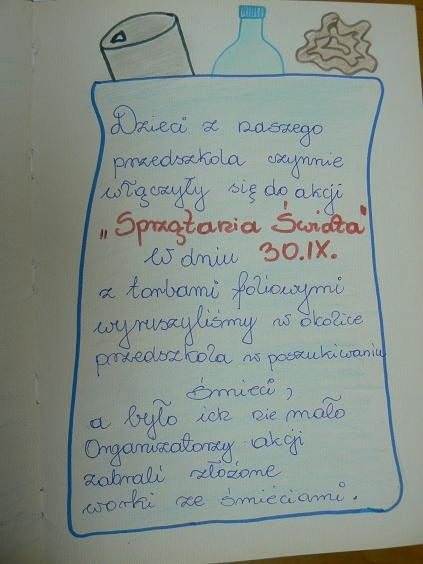 Dzieci z naszego
przedszkola czynnie
włączyły się do akcji
„Sprzątania Świata"
W dniu 30.IX.
z torbami foliowymi
wyruszyliśmy w okolice
przedszkola w poszukiwaniu
śmieci,
a było ich nie mało
Organizatorzy akcji
zabrali złożone
worki ze śmieciami.